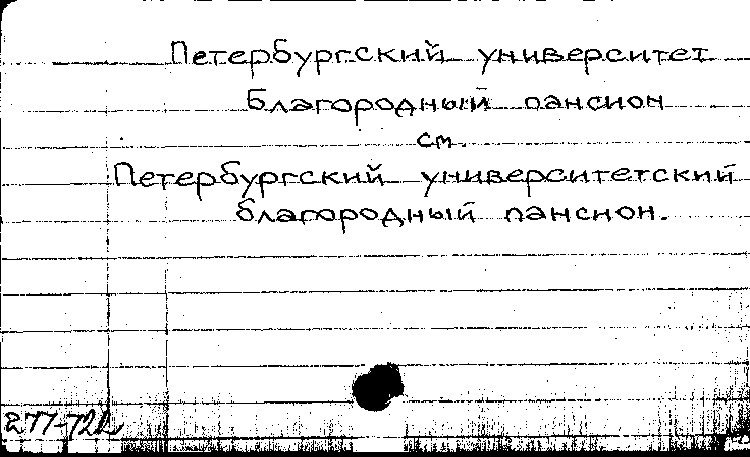 Петербургский университет
Благородный пансион
см.
Петербургский университетский
благородный пансион.